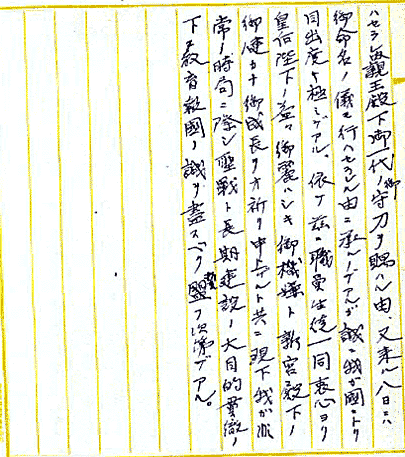 ハセラレ親王殿下御一代ノ御守刀ヲ賜ハル由、又来ル八日ニハ
御命名ノ儀モ行ハセラレル由ニ承ルノデアルガ誠ニ我ガ國ニトリ
目出度キ極ミデアル、依ケ茲ニ職員生徒一同衷心ヨリ
皇后陛下ノ益々御麗ハシキ御機嫌ト新宮殿下ノ
御健カナ御成長ヲオ祈リ申上ルト共ニ現下我ガ非
常ノ時局ニ際シ聖戦ト長期建設ノ大目的貫徹ノ
下ニ教育報國ノ誠ヲ盡スベク誓フ次第デアル。